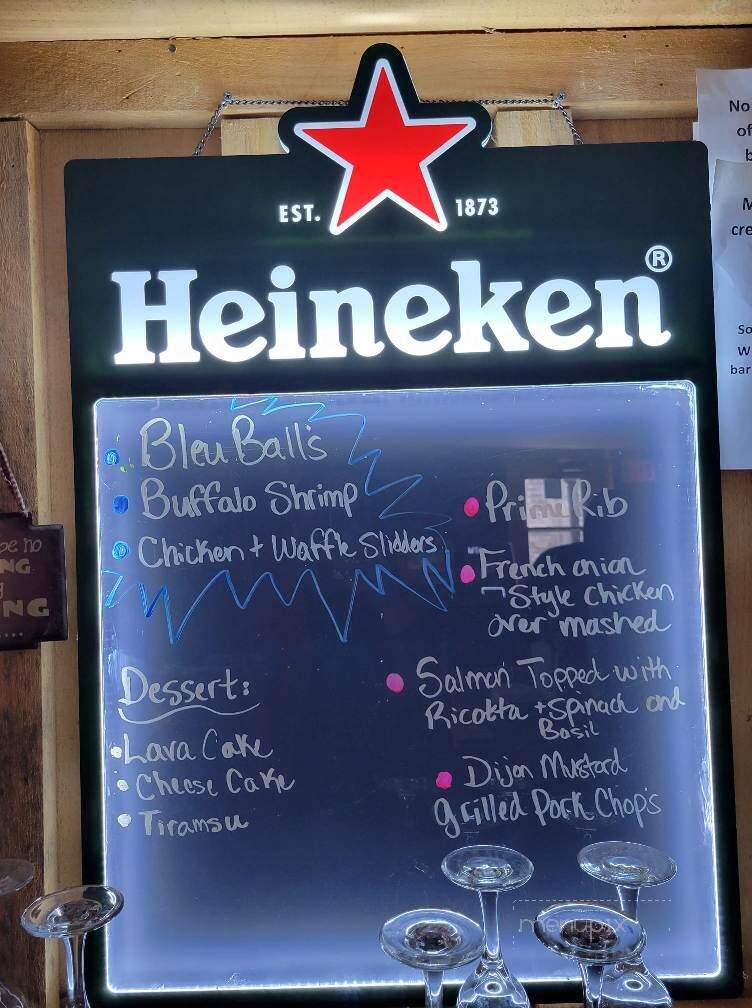 EST. 1873
Heineken®
Bleu Ball's
Buffalo Shrimp
Chicken + Waffle Slidders
Dessert:
Lava Cake
Cheese Cake
Tiramsu
Prime Rib
French onion
Style chicken
over mashed
Salmon Topped with
Ricotta + Spinach and
Basil
Dijon Mustard
grilled Pork Chop's
No
of
b
M
cre
So
W
bar
be no
NG
NG
....
menupix